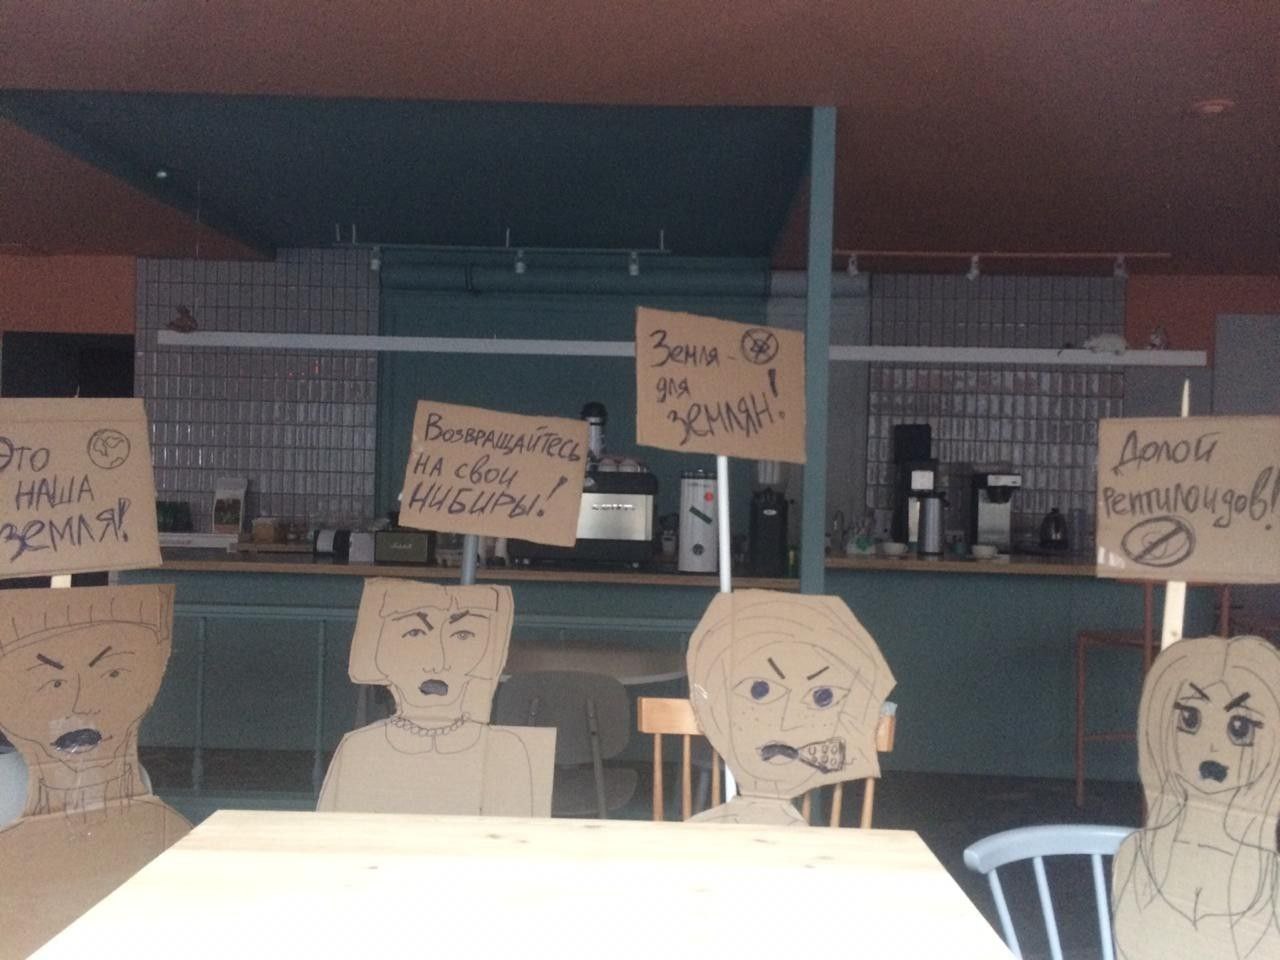 Это
наша
земля!
Возвращайтесь
на свои
Нибиры!
Земля -
для
землян!
Долой
рептилоидов!